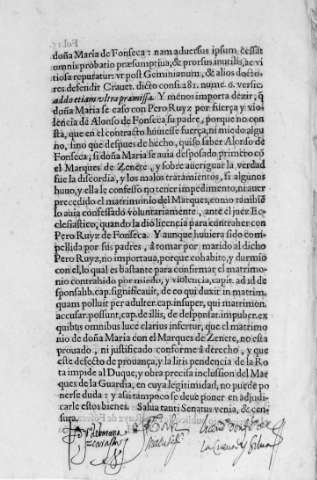 doña Maria de Fonseca: nam aduersus ipsum cessat
omnis probatio præsumptiua, & prorsus inutilis, ac vi
tiosa reputatur: vt post Geminianum, & alios docto
res defendit Crauet. dicto consi. 281. nume. 6. versic.
addo etiam vltra præmissa. Y menos importa dezir, q̃
doña Maria se caso con Pero Ruyz por fuerça y vio
lencia de Alonso de Fonseca su padre, porque no con
sta, que en el contracto houiesse fuerça, ni miedo algu
no, sino que despues de hecho, quiso saber Alonso de
Fonseca, si doña Maria se auia desposado primero cõ
el Marques de Zenete, y sobre aueriguar la verdad
fue la discordia, y los malos tratamientos, si algunos
huuo, y ella le confesso no tener impedimento, ni auer
precedido el matrimonio del Marques, como tambiẽ
lo auia confessado voluntariamente, ante el juez Ec-
clesiastico, quando la dió licencia para contraher con
Pero Ruyz de Fonseca. Y aunque huuiera sido com
pellida por sus padres, à tomar por marido al dicho
Pero Ruyz, no importaua, porque cohabito, y durmio
con el, lo qual es bastante para confirmar el matrimo-
nio contrahido por miedo, y violencia, capit. ad id de
sponsalib. cap. significauit, de eo qui duxit in matrim.
quam polluit per adulter. cap. insuper, qui matrimon.
accusar. possunt, cap. de illis, de desponsat. impuber. ex
quibus omnibus luce clarius infertur, que el matrimo
nio de doña Maria con el Marques de Zenete, no esta
prouado, ni justificado conforme à derecho, y que
este defecto de prouança, y la litis pendencia de la Ro
ta impide al Duque, y obra precisa inclusion del Mar
ques de la Guardia, en cuya legitimidad, no puede po
nerse duda: y assi tampoco se deue poner en adjudi-
carle estos bienes. Salua tanti Senatus venia, & cen-
sura.